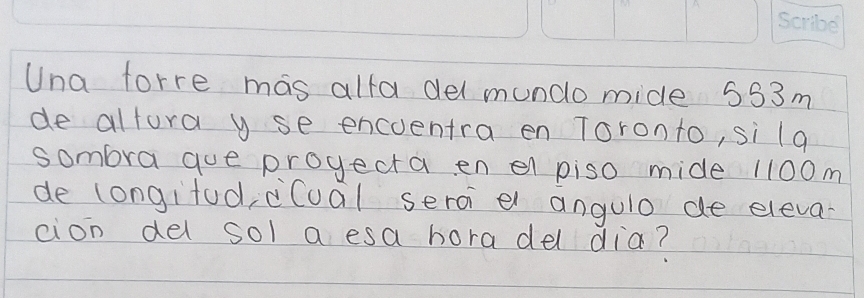 Scribe
Una torre más alta del mundo mide 553m
de altura y se encuentra en Toronto, si la
sombra que proyecta en el piso mide 1100m
de longitud, ¿Cuál será el ángulo de eleva-
ción del sol a esa hora del día?